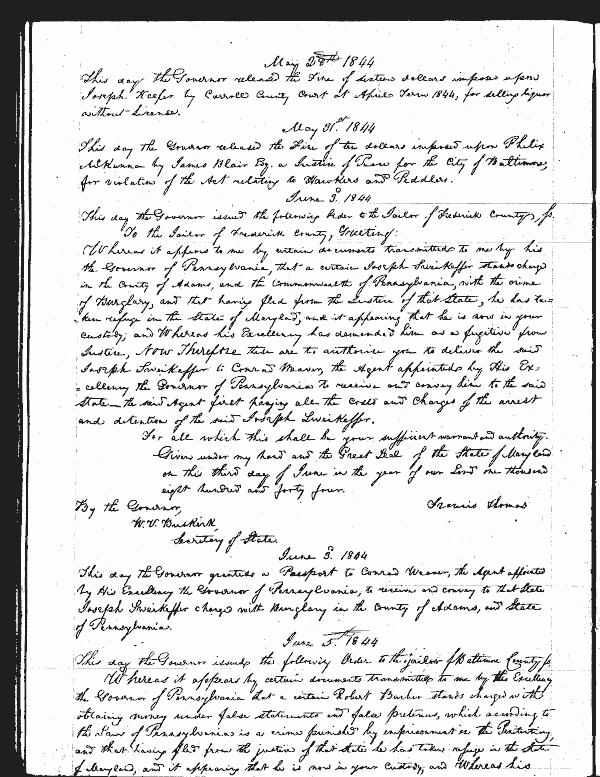 May 28th 1844
This day the Governor released the Fine of sixteen dollars imposed upon
Joseph Keefer by Carroll County Court at April Term 1844, for selling liquor
without License.
May 31st 1844
This day the Governor released the Fine of ten dollars imposed upon Philix
McKinnan by James Blair Esq. a Justice of Peace for the City of Baltimore,
for violation of the Act relating to Hawkers and Peddlers.
June 3. 1844
This day the Governor issued the following Order to the Jailor of Frederick County,
To the Jailor of Frederick County, Greeting:
Whereas it appears to me by certain documents transmitted to me by his
the Governor of Pennsylvania, that a certain Joseph Sweikeffer stands charged
in the County of Adams, and the Commonwealth of Pennsylvania, with the crime
of Burglary, and that having fled from the Justice of that State, he has ta-
ken refuge in the State of Maryland, and it appearing that he is now in your
custody; and Whereas his Excellency has demanded him as a fugitive from
Justice, Now Therefore these are to authorise you to deliver the said
Joseph Sweikeffer to Conrad Weaver, the Agent appointed by His Ex-
cellency the Governor of Pennsylvania to receive and convey him to the said
State—the said Agent first paying all the Costs and Charges of the arrest
and detention of the said Joseph Sweikeffer.
For all which this shall be your sufficient warrant and authority.
Given under my hand and the Great Seal of the State of Maryland
on this third day of June in the year of our Lord one thousand
eight hundred and forty four.
By the Governor, Francis Thomas
W. V. Buskirk,
Secretary of State
June 3. 1844
This day the Governor granted a Passport to Conrad Weaver, the Agent appointed
by His Excellency the Governor of Pennsylvania, to receive and convey to that State
Joseph Sweikeffer charged with Burglary in the County of Adams, and State
of Pennsylvania.
June 5th 1844
This day the Governor issued the following Order to the jailor of Baltimore County
Whereas it appears by certain documents transmitted to me by the Excellency
the Governor of Pennsylvania that a certain Robert Barber stands charged with
obtaining money under false statements and false pretences, which according to
the Laws of Pennsylvania is a crime punished by imprisonment in the Penitentiary,
and that having fled from the justice of that State he has taken refuge in the State
of Maryland, and it appearing that he is now in your Custody, and Whereas his